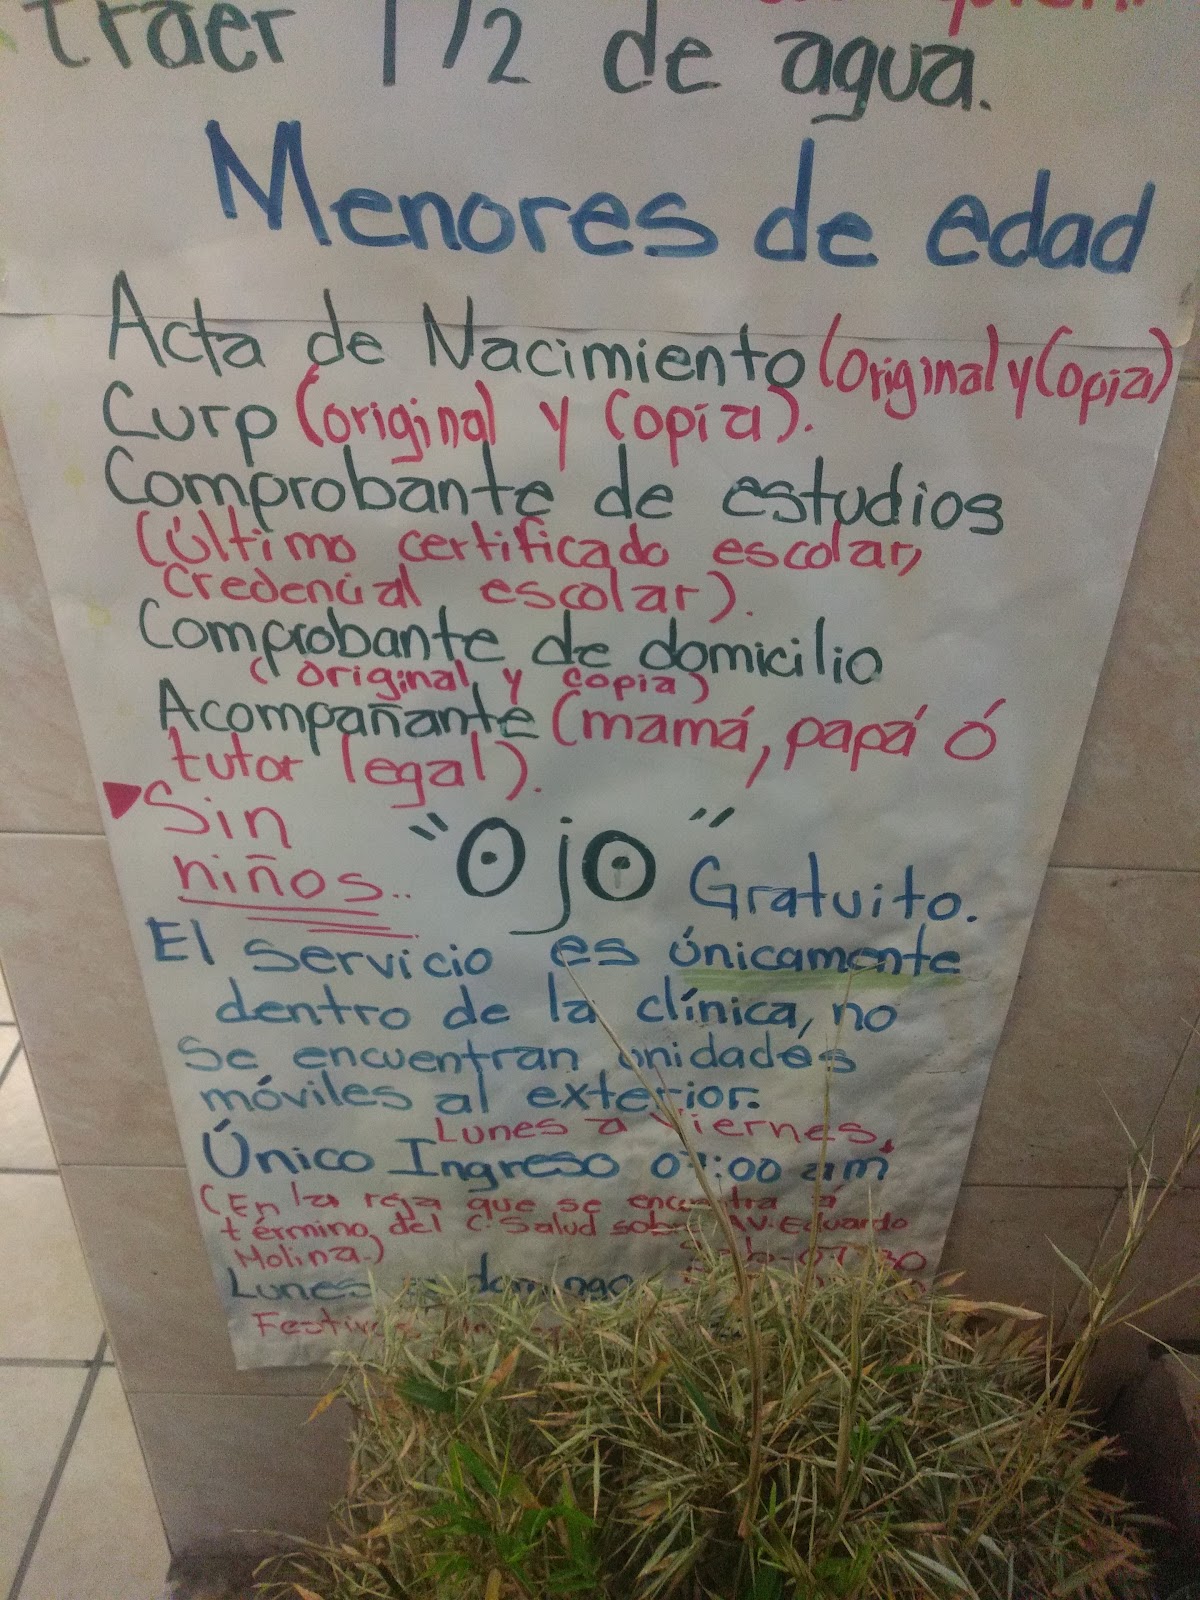 traer 1 1/2 de agua.
Menores de edad
Acta de Nacimiento (original y Copia)
Curp (original y Copia).
Comprobante de estudios
(último certificado escolar,
credencial escolar).
Comprobante de domicilio
(original y copia)
Acompañante (mamá, papá ó
tutor legal).
Sin
niños..
"Ojo" Gratuito.
El servicio es únicamente
dentro de la clínica, no
se encuentran unidades
móviles al exterior.
Lunes a Viernes,
Único Ingreso 07:00 am
(En la reja que se encuentra á
término del C. Salud sobre AV. Eduardo
Molina.)
Lunes a domingo